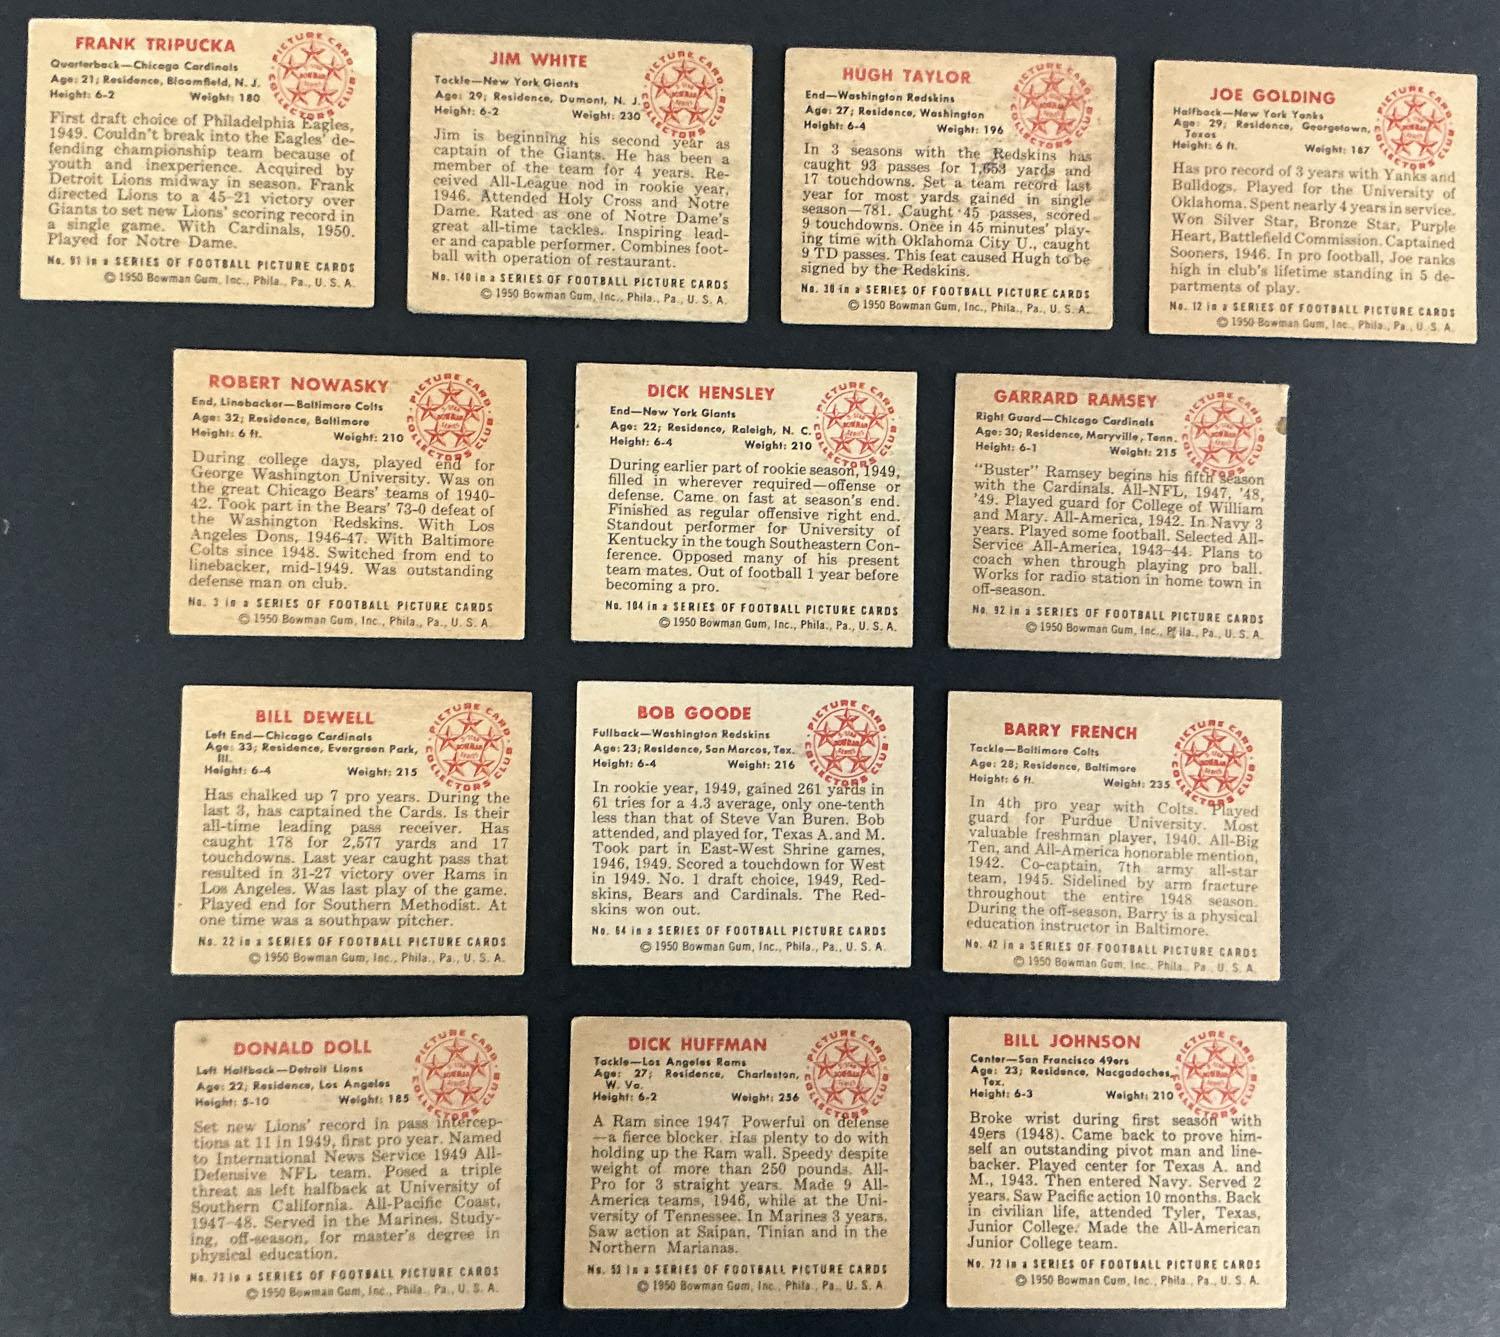 FRANK TRIPUCKA
Quarterback—Chicago Cardinals
Age: 21; Residence, Bloomfield, N. J.
Height: 6-2 Weight: 180
First draft choice of Philadelphia Eagles,
1949. Couldn't break into the Eagles' de-
fending championship team because of
youth and inexperience. Acquired by
Detroit Lions midway in season. Frank
directed Lions to a 45-21 victory over
Giants to set new Lions' scoring record in
a single game. With Cardinals, 1950.
Played for Notre Dame.
No. 91 in a SERIES OF FOOTBALL PICTURE CARDS
© 1950 Bowman Gum, Inc., Phila., Pa., U. S. A.
PICTURE CARD COLLECTORS CLUB
5-STAR
BOWMAN
SERIES
JIM WHITE
Tackle—New York Giants
Age: 29; Residence, Dumont, N. J.
Height: 6-2 Weight: 230
Jim is beginning his second year as
captain of the Giants. He has been a
member of the team for 4 years. Re-
ceived All-League nod in rookie year,
1946. Attended Holy Cross and Notre
Dame. Rated as one of Notre Dame's
great all-time tackles. Inspiring lead-
er and capable performer. Combines foot-
ball with operation of restaurant.
No. 140 in a SERIES OF FOOTBALL PICTURE CARDS
© 1950 Bowman Gum, Inc., Phila., Pa., U. S. A.
PICTURE CARD COLLECTORS CLUB
5-STAR
BOWMAN
SERIES
HUGH TAYLOR
End—Washington Redskins
Age: 27; Residence, Washington
Height: 6-4 Weight: 196
In 3 seasons with the Redskins has
caught 93 passes for 1,653 yards and
17 touchdowns. Set a team record last
year for most yards gained in single
season—781. Caught 45 passes, scored
9 touchdowns. Once in 45 minutes' play-
ing time with Oklahoma City U., caught
9 TD passes. This feat caused Hugh to be
signed by the Redskins.
No. 30 in a SERIES OF FOOTBALL PICTURE CARDS
© 1950 Bowman Gum, Inc., Phila., Pa., U. S. A.
PICTURE CARD COLLECTORS CLUB
5-STAR
BOWMAN
SERIES
JOE GOLDING
Halfback—New York Yanks
Age: 29, Residence, Georgetown,
Texas
Height: 6 ft. Weight: 187
Has pro record of 3 years with Yanks and
Bulldogs. Played for the University of
Oklahoma. Spent nearly 4 years in service.
Won Silver Star, Bronze Star, Purple
Heart, Battlefield Commission. Captained
Sooners, 1946. In pro football, Joe ranks
high in club's lifetime standing in 5 de-
partments of play.
No. 12 in a SERIES OF FOOTBALL PICTURE CARDS
© 1950 Bowman Gum, Inc., Phila., Pa., U. S. A.
PICTURE CARD COLLECTORS CLUB
5-STAR
BOWMAN
SERIES
ROBERT NOWASKY
End, Linebacker—Baltimore Colts
Age: 32; Residence, Baltimore
Height: 6 ft. Weight: 210
During college days, played end for
George Washington University. Was on
the great Chicago Bears' teams of 1940-
42. Took part in the Bears' 73-0 defeat of
the Washington Redskins. With Los
Angeles Dons, 1946-47. With Baltimore
Colts since 1948. Switched from end to
linebacker, mid-1949. Was outstanding
defense man on club.
No. 3 in a SERIES OF FOOTBALL PICTURE CARDS
© 1950 Bowman Gum, Inc., Phila., Pa., U. S. A.
PICTURE CARD COLLECTORS CLUB
5-STAR
BOWMAN
SERIES
DICK HENSLEY
End—New York Giants
Age: 22; Residence, Raleigh, N. C.
Height: 6-4 Weight: 210
During earlier part of rookie season, 1949,
filled in wherever required—offense or
defense. Came on fast at season's end.
Finished as regular offensive right end.
Standout performer for University of
Kentucky in the tough Southeastern Con-
ference. Opposed many of his present
team mates. Out of football 1 year before
becoming a pro.
No. 104 in a SERIES OF FOOTBALL PICTURE CARDS
© 1950 Bowman Gum, Inc., Phila., Pa., U. S. A.
PICTURE CARD COLLECTORS CLUB
5-STAR
BOWMAN
SERIES
GARRARD RAMSEY
Right Guard—Chicago Cardinals
Age: 30; Residence, Maryville, Tenn.
Height: 6-1 Weight: 215
"Buster" Ramsey begins his fifth season
with the Cardinals. All-NFL, 1947, '48,
'49. Played guard for College of William
and Mary. All-America, 1942. In Navy 3
years. Played some football. Selected All-
Service All-America, 1943-44. Plans to
coach when through playing pro ball.
Works for radio station in home town in
off-season.
No. 92 in a SERIES OF FOOTBALL PICTURE CARDS
© 1950 Bowman Gum, Inc., Phila., Pa., U. S. A.
PICTURE CARD COLLECTORS CLUB
5-STAR
BOWMAN
SERIES
BILL DEWELL
Left End—Chicago Cardinals
Age: 33; Residence, Evergreen Park,
Ill.
Height: 6-4 Weight: 215
Has chalked up 7 pro years. During the
last 3, has captained the Cards. Is their
all-time leading pass receiver. Has
caught 178 for 2,577 yards and 17
touchdowns. Last year caught pass that
resulted in 31-27 victory over Rams in
Los Angeles. Was last play of the game.
Played end for Southern Methodist. At
one time was a southpaw pitcher.
No. 22 in a SERIES OF FOOTBALL PICTURE CARDS
© 1950 Bowman Gum, Inc., Phila., Pa., U. S. A.
PICTURE CARD COLLECTORS CLUB
5-STAR
BOWMAN
SERIES
BOB GOODE
Fullback—Washington Redskins
Age: 23; Residence, San Marcos, Tex.
Height: 6-4 Weight: 216
In rookie year, 1949, gained 261 yards in
61 tries for a 4.3 average, only one-tenth
less than that of Steve Van Buren. Bob
attended, and played for, Texas A. and M.
Took part in East-West Shrine games,
1946, 1949. Scored a touchdown for West
in 1949. No. 1 draft choice, 1949, Red-
skins, Bears and Cardinals. The Red-
skins won out.
No. 64 in a SERIES OF FOOTBALL PICTURE CARDS
© 1950 Bowman Gum, Inc., Phila., Pa., U. S. A.
PICTURE CARD COLLECTORS CLUB
5-STAR
BOWMAN
SERIES
BARRY FRENCH
Tackle—Baltimore Colts
Age: 28; Residence, Baltimore
Height: 6 ft. Weight: 235
In 4th pro year with Colts. Played
guard for Purdue University. Most
valuable freshman player, 1940. All-Big
Ten, and All-America honorable mention,
1942. Co-captain, 7th army all-star
team, 1945. Sidelined by arm fracture
throughout the entire 1948 season.
During the off-season, Barry is a physical
education instructor in Baltimore.
No. 42 in a SERIES OF FOOTBALL PICTURE CARDS
© 1950 Bowman Gum, Inc., Phila., Pa., U. S. A.
PICTURE CARD COLLECTORS CLUB
5-STAR
BOWMAN
SERIES
DONALD DOLL
Left Halfback—Detroit Lions
Age: 22; Residence, Los Angeles
Height: 5-10 Weight: 185
Set new Lions' record in pass intercep-
tions at 11 in 1949, first pro year. Named
to International News Service 1949 All-
Defensive NFL team. Posed a triple
threat as left halfback at University of
Southern California. All-Pacific Coast,
1947-48. Served in the Marines. Study-
ing, off-season, for master's degree in
physical education.
No. 73 in a SERIES OF FOOTBALL PICTURE CARDS
© 1950 Bowman Gum, Inc., Phila., Pa., U. S. A.
PICTURE CARD COLLECTORS CLUB
5-STAR
BOWMAN
SERIES
DICK HUFFMAN
Tackle—Los Angeles Rams
Age: 27; Residence, Charleston,
W. Va.
Height: 6-2 Weight: 256
A Ram since 1947 Powerful on defense
—a fierce blocker. Has plenty to do with
holding up the Ram wall. Speedy despite
weight of more than 250 pounds. All-
Pro for 3 straight years. Made 9 All-
America teams, 1946, while at the Uni-
versity of Tennessee. In Marines 3 years.
Saw action at Saipan, Tinian and in the
Northern Marianas.
No. 53 in a SERIES OF FOOTBALL PICTURE CARDS
© 1950 Bowman Gum, Inc., Phila., Pa., U. S. A.
PICTURE CARD COLLECTORS CLUB
5-STAR
BOWMAN
SERIES
BILL JOHNSON
Center—San Francisco 49ers
Age: 23; Residence, Nacgadoches,
Tex.
Height: 6-3 Weight: 210
Broke wrist during first season with
49ers (1948). Came back to prove him-
self an outstanding pivot man and line-
backer. Played center for Texas A. and
M., 1943. Then entered Navy. Served 2
years. Saw Pacific action 10 months. Back
in civilian life, attended Tyler, Texas,
Junior College. Made the All-American
Junior College team.
No. 72 in a SERIES OF FOOTBALL PICTURE CARDS
© 1950 Bowman Gum, Inc., Phila., Pa., U. S. A.
PICTURE CARD COLLECTORS CLUB
5-STAR
BOWMAN
SERIES